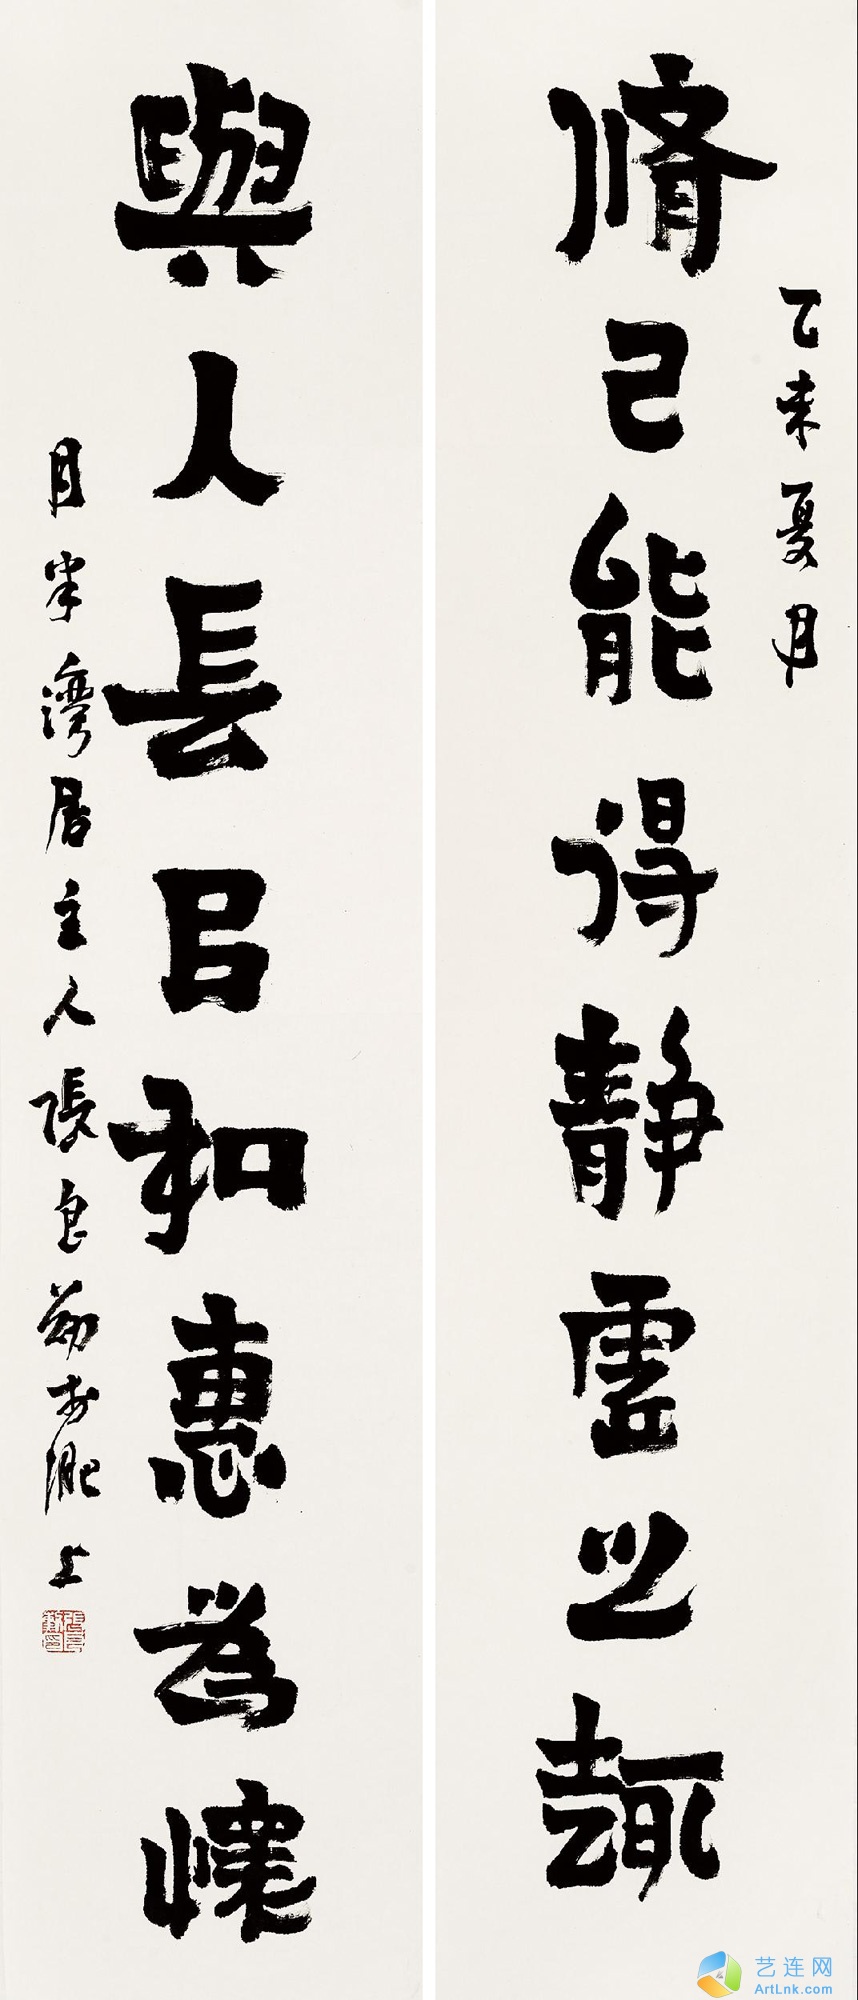 乙未夏月
脩己能得靜虛之趣
與人長㠯和惠為懷
月半灣居主人張良勛於淝上
艺连网
ArtLnk.com